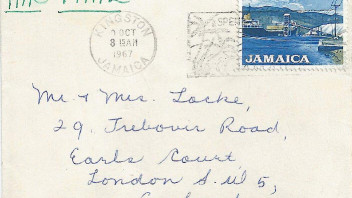 AIR MAIL
KINGSTON
OCT
8 AM
1967
JAMAICA
SPEN
JAMAICA
Mr & Mrs. Locke,
29, Trebovir Road,
Earls Court,
London S.W 5,